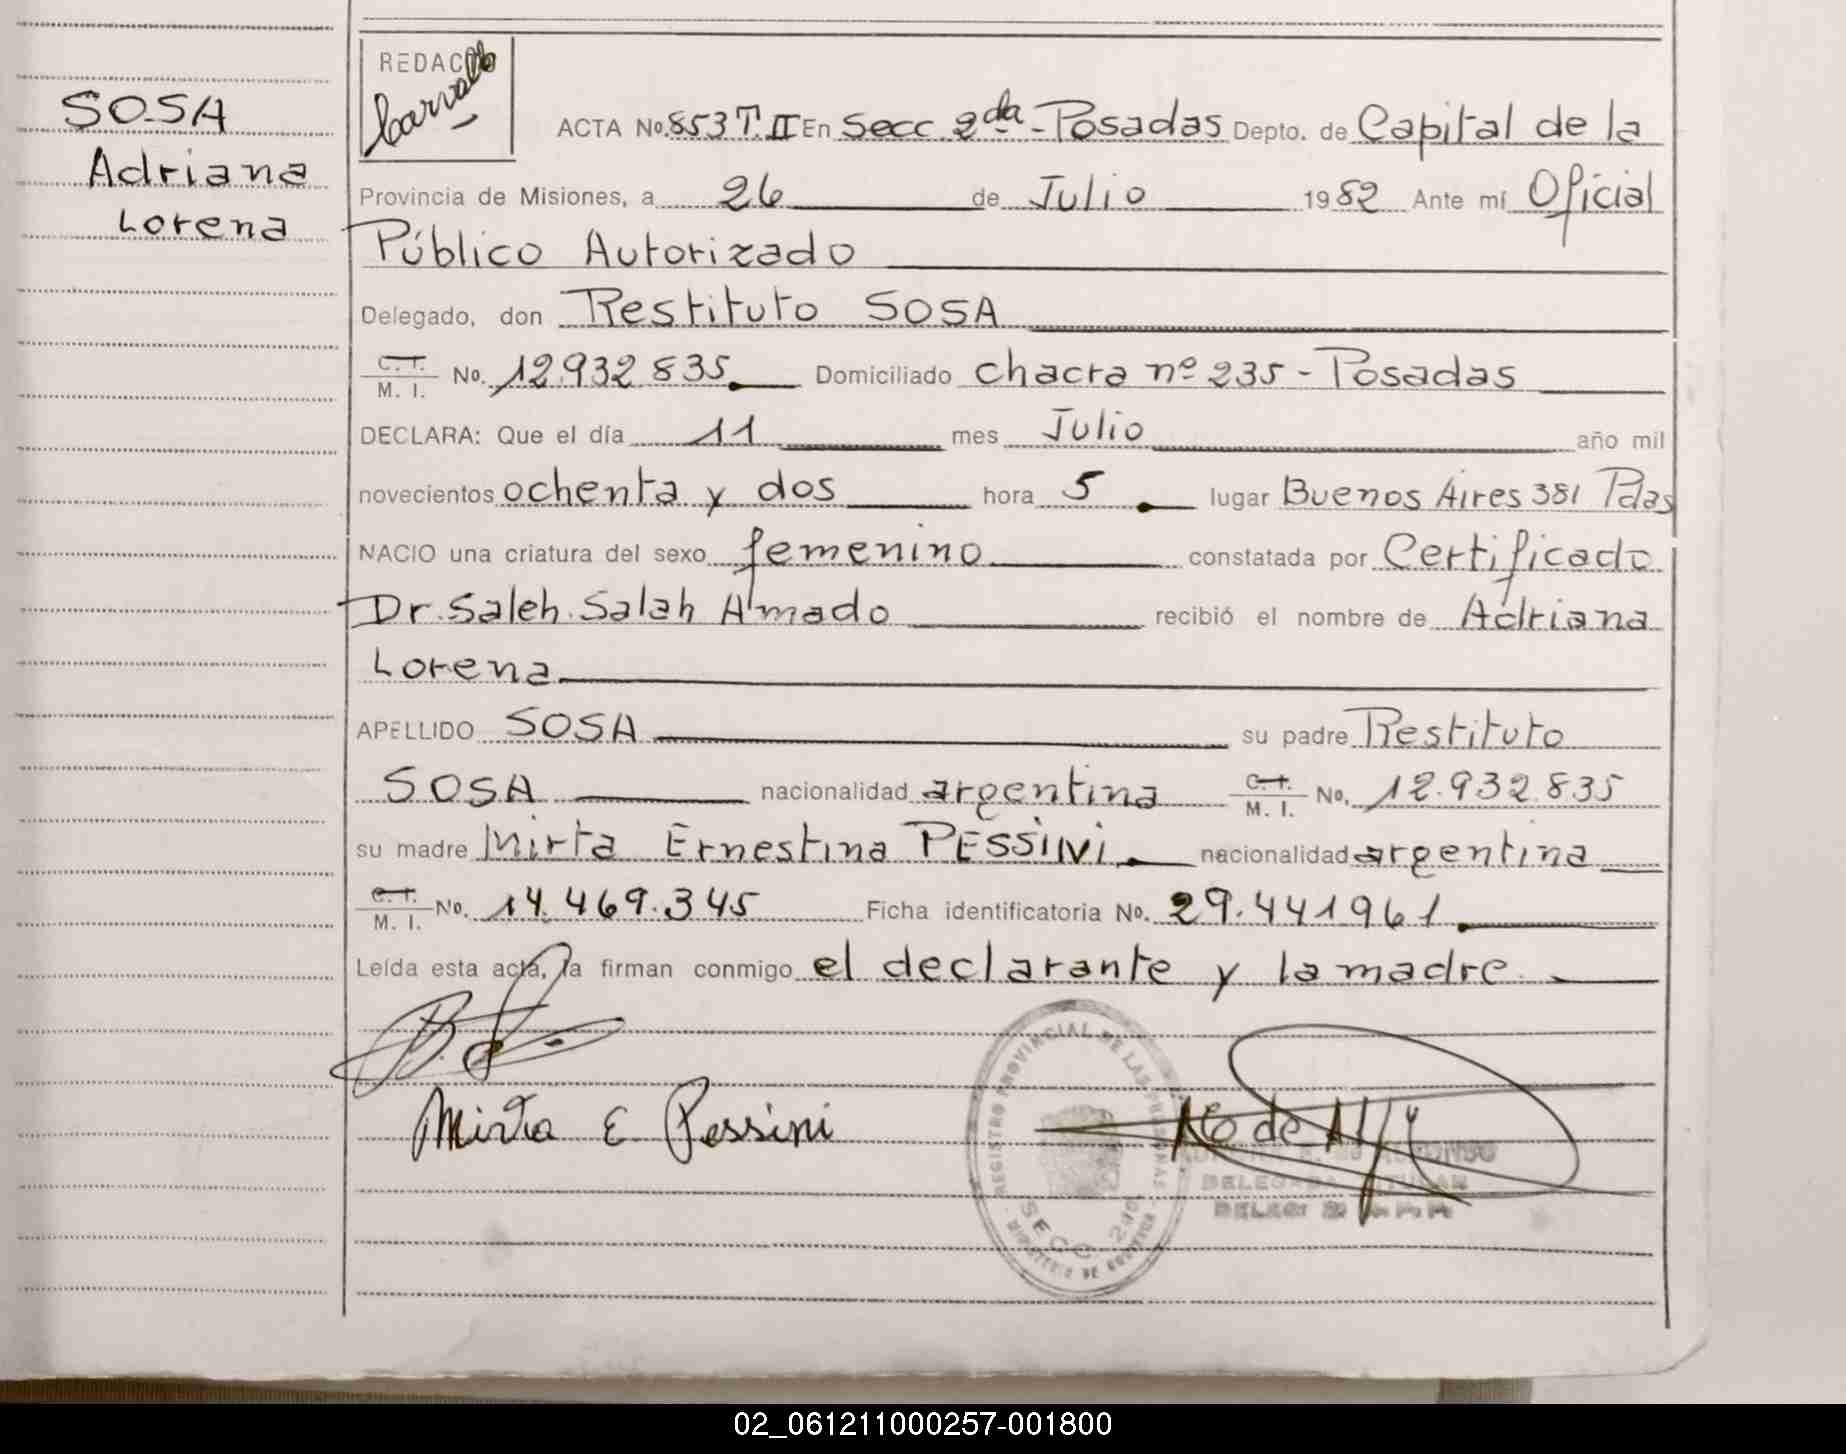 SOSA
Adriana
Lorena
REDACTO
Carvallo
ACTA No. 853 T. II En Secc 2da - Posadas Depto. de Capital de la
Provincia de Misiones, a 26 de Julio 1982 Ante mí Oficial
Público Autorizado
Delegado, don Restituto SOSA
C. I. M. I. No. 12.932.835 Domiciliado chacra nº 235 - Posadas
DECLARA: Que el día 11 mes Julio año mil
novecientos ochenta y dos hora 5 lugar Buenos Aires 381 Pdas
NACIO una criatura del sexo femenino constatada por Certificado
Dr. Saleh. Salah Amado recibió el nombre de Adriana
Lorena
APELLIDO SOSA su padre Restituto
SOSA nacionalidad argentina C. I. M. I. No. 12.932.835
su madre Mirta Ernestina PESSINI nacionalidad argentina
C. I. M. I. No. 14.469.345 Ficha identificatoria No. 29.441961
Leída esta acta, la firman conmigo el declarante y la madre
Mirta E Pessini
REGISTRO PROVINCIAL DE LAS PERSONAS
SECC. 2da
MINISTERIO DE GOBIERNO
DE ALFONSO
DELEGADA TITULAR
02_061211000257-001800